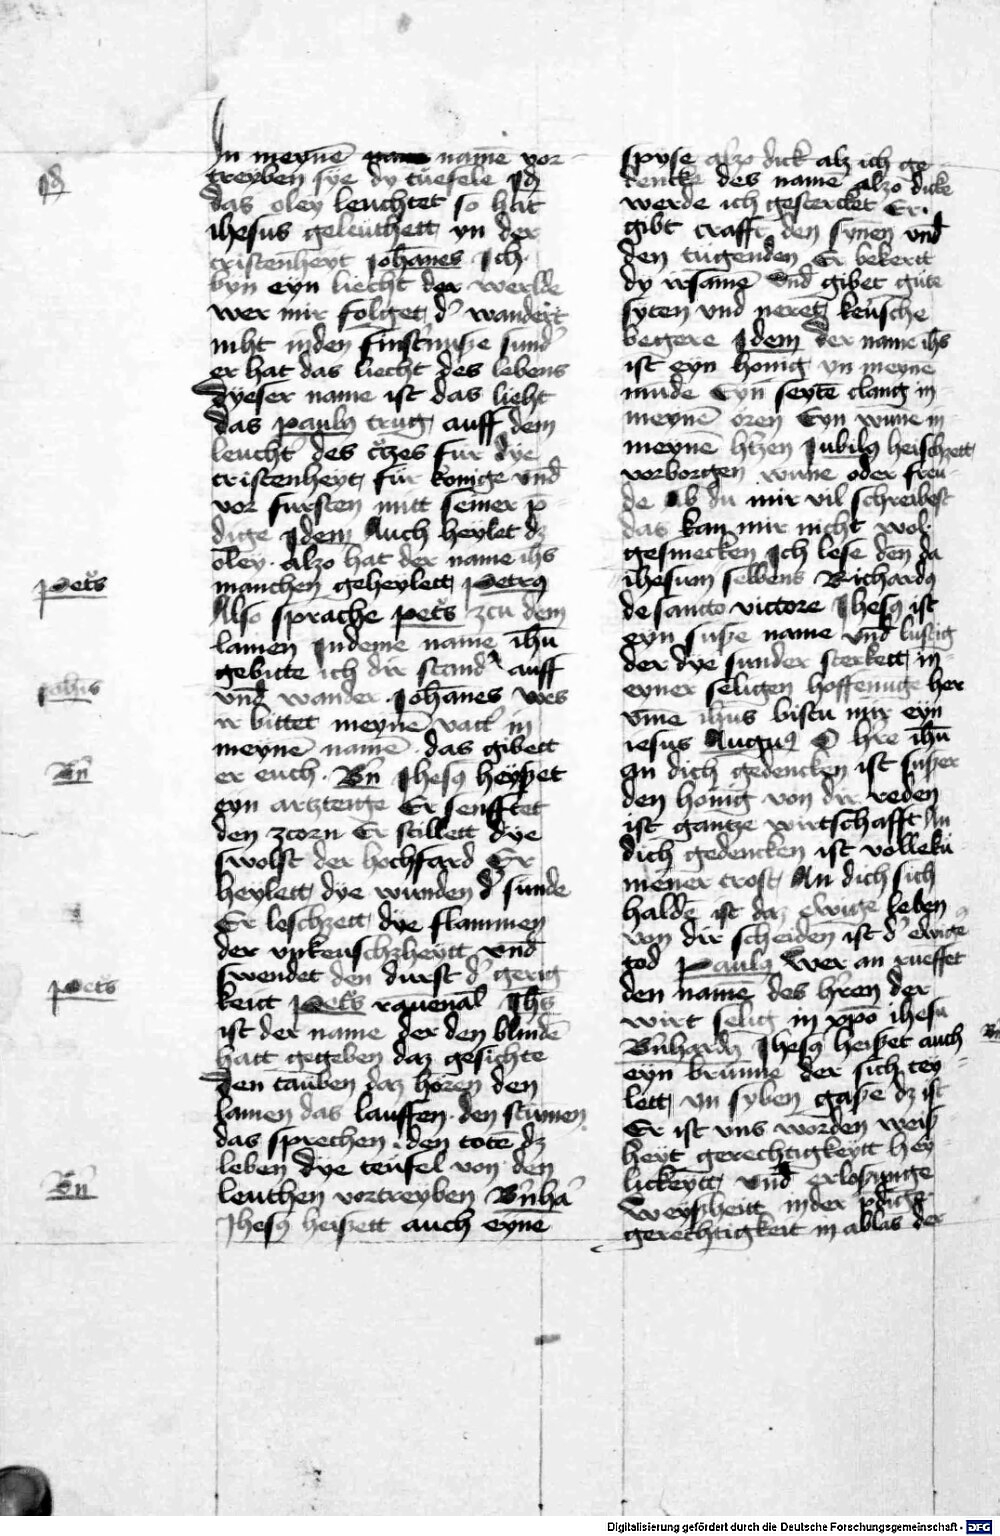 In meynē namē vor-
treyben sye dy tuefele Jd
das oley leuchtet so hat
ihesus geleuchett yn der
cristenheyt Johānes Ich
byn eyn liecht der werlde
wer mir folget d' wandert
niht in den finst'nuße sund'
er hat das liecht des lebens
Dyeser name ist das lieht
das paulꝰ trug auff dem
leucht' des c'tzes fur dye
cristenheyt fur konige vnd
vor fursten mitt seiner p̄-
dige Jdem Auch heylet dz
oley. alzo hat der name ihs
manchen geheylett petrꝰ
Also sprache pet's zcu dem
lamen Jn deme name ihū
gebitte ich dir stand auff
vnd wander. Johānes
r bittet meynē vatt' in
meynē namē. das gibett
er euch. B'n Jhesꝰ heyßet
eyn artztenge Er senfftet
den zcorn Er stillett dye
swolst der hochfard Er
heylett dye wunden d' sunde
Er leschzett dye flammen
der vnkeuschzheytt vnd
swendet den durst d' gerig
keitt pet's rauenal Jhs̄
ist der name der den blindē
hatt gegeben daz gesichte
Den tauben daz horen den
lamen das lauffen. den stūmen
das sprechen. den totē dz
leben dye teufel von den
leuthen vortreyben B'nha'
Jhesꝰ heißett auch eyne
spyse alzo dick alz ich ge-
dencke des namē alzo dicke
werde ich gestercket Er.
gibt crafft den synen vnd
den tugenden Er bekertt
dy vnd gibet gute
syten vnd neret keusche
begere Jdem Der name ihs
ist eyn honig yn meyne
munde Eyn seytē clang in
meynē oren Eyn wūne in
meynē h'tzen Jubilꝰ heischzett
vorborgen wūne oder freu-
de Ab du mir vil schreibest
das kan mir nicht wol.
gesmecken Ich lese den da
ihesum selbens Richardꝰ
de sancto victore Jhesꝰ ist
eyn suße name vnd lustig
der dye sunder sterkett in
eyner seligen hoffenuge her
vm̄e ihūs bistu mir eyn
iesus Augꝰ O h're ihū
an dich gedencken ist sußer
den honig von dir reden
ist gantze wirtschafft An
dich gedencken ist volleku
mener trost An dich sich
haldē ist daz ewige leben
von dir scheiden ist d' ewige
tod Paulꝰ Wer an rueffet
den namē des h'ren der
wirt selig in xp̄o ihesu
B'nhardꝰ Jhesꝰ heißet auch
eyn brunne der sich tey
lett yn syben gaße dz ist
Er ist vns worden weiß
heyt gerechtigkeytt hey
lickeytt vnd erlosunge
Weyßheitt in der p̄dige
gerechtigkeit in ablas der
Jd
Pet's
Joh̄is
B'n
Pet's
B'n
B'n
Digitalisierung gefördert durch die Deutsche Forschungsgemeinschaft - DFG